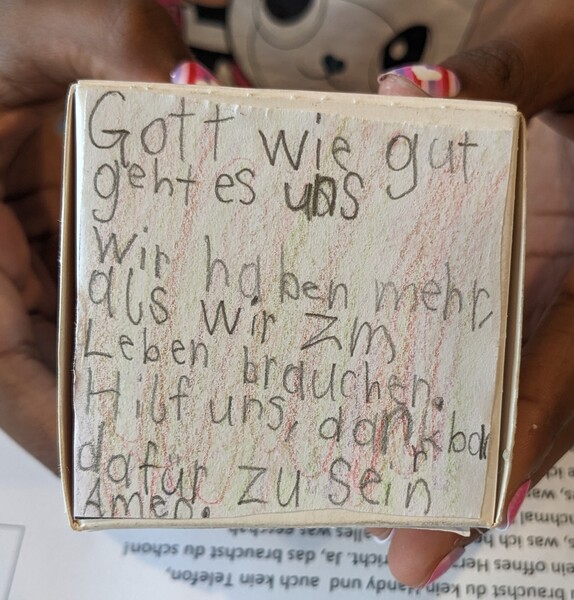 Gott wie gut
geht es uns
wir haben mehr,
als wir zm
Leben brauchen.
Hilf uns, dankbar
dafür zu sein
Amen.
brauchst du kein Handy und auch kein Telefon,
ein offnes Herz Ja, das brauchst du schon!
was ich alles was geschah